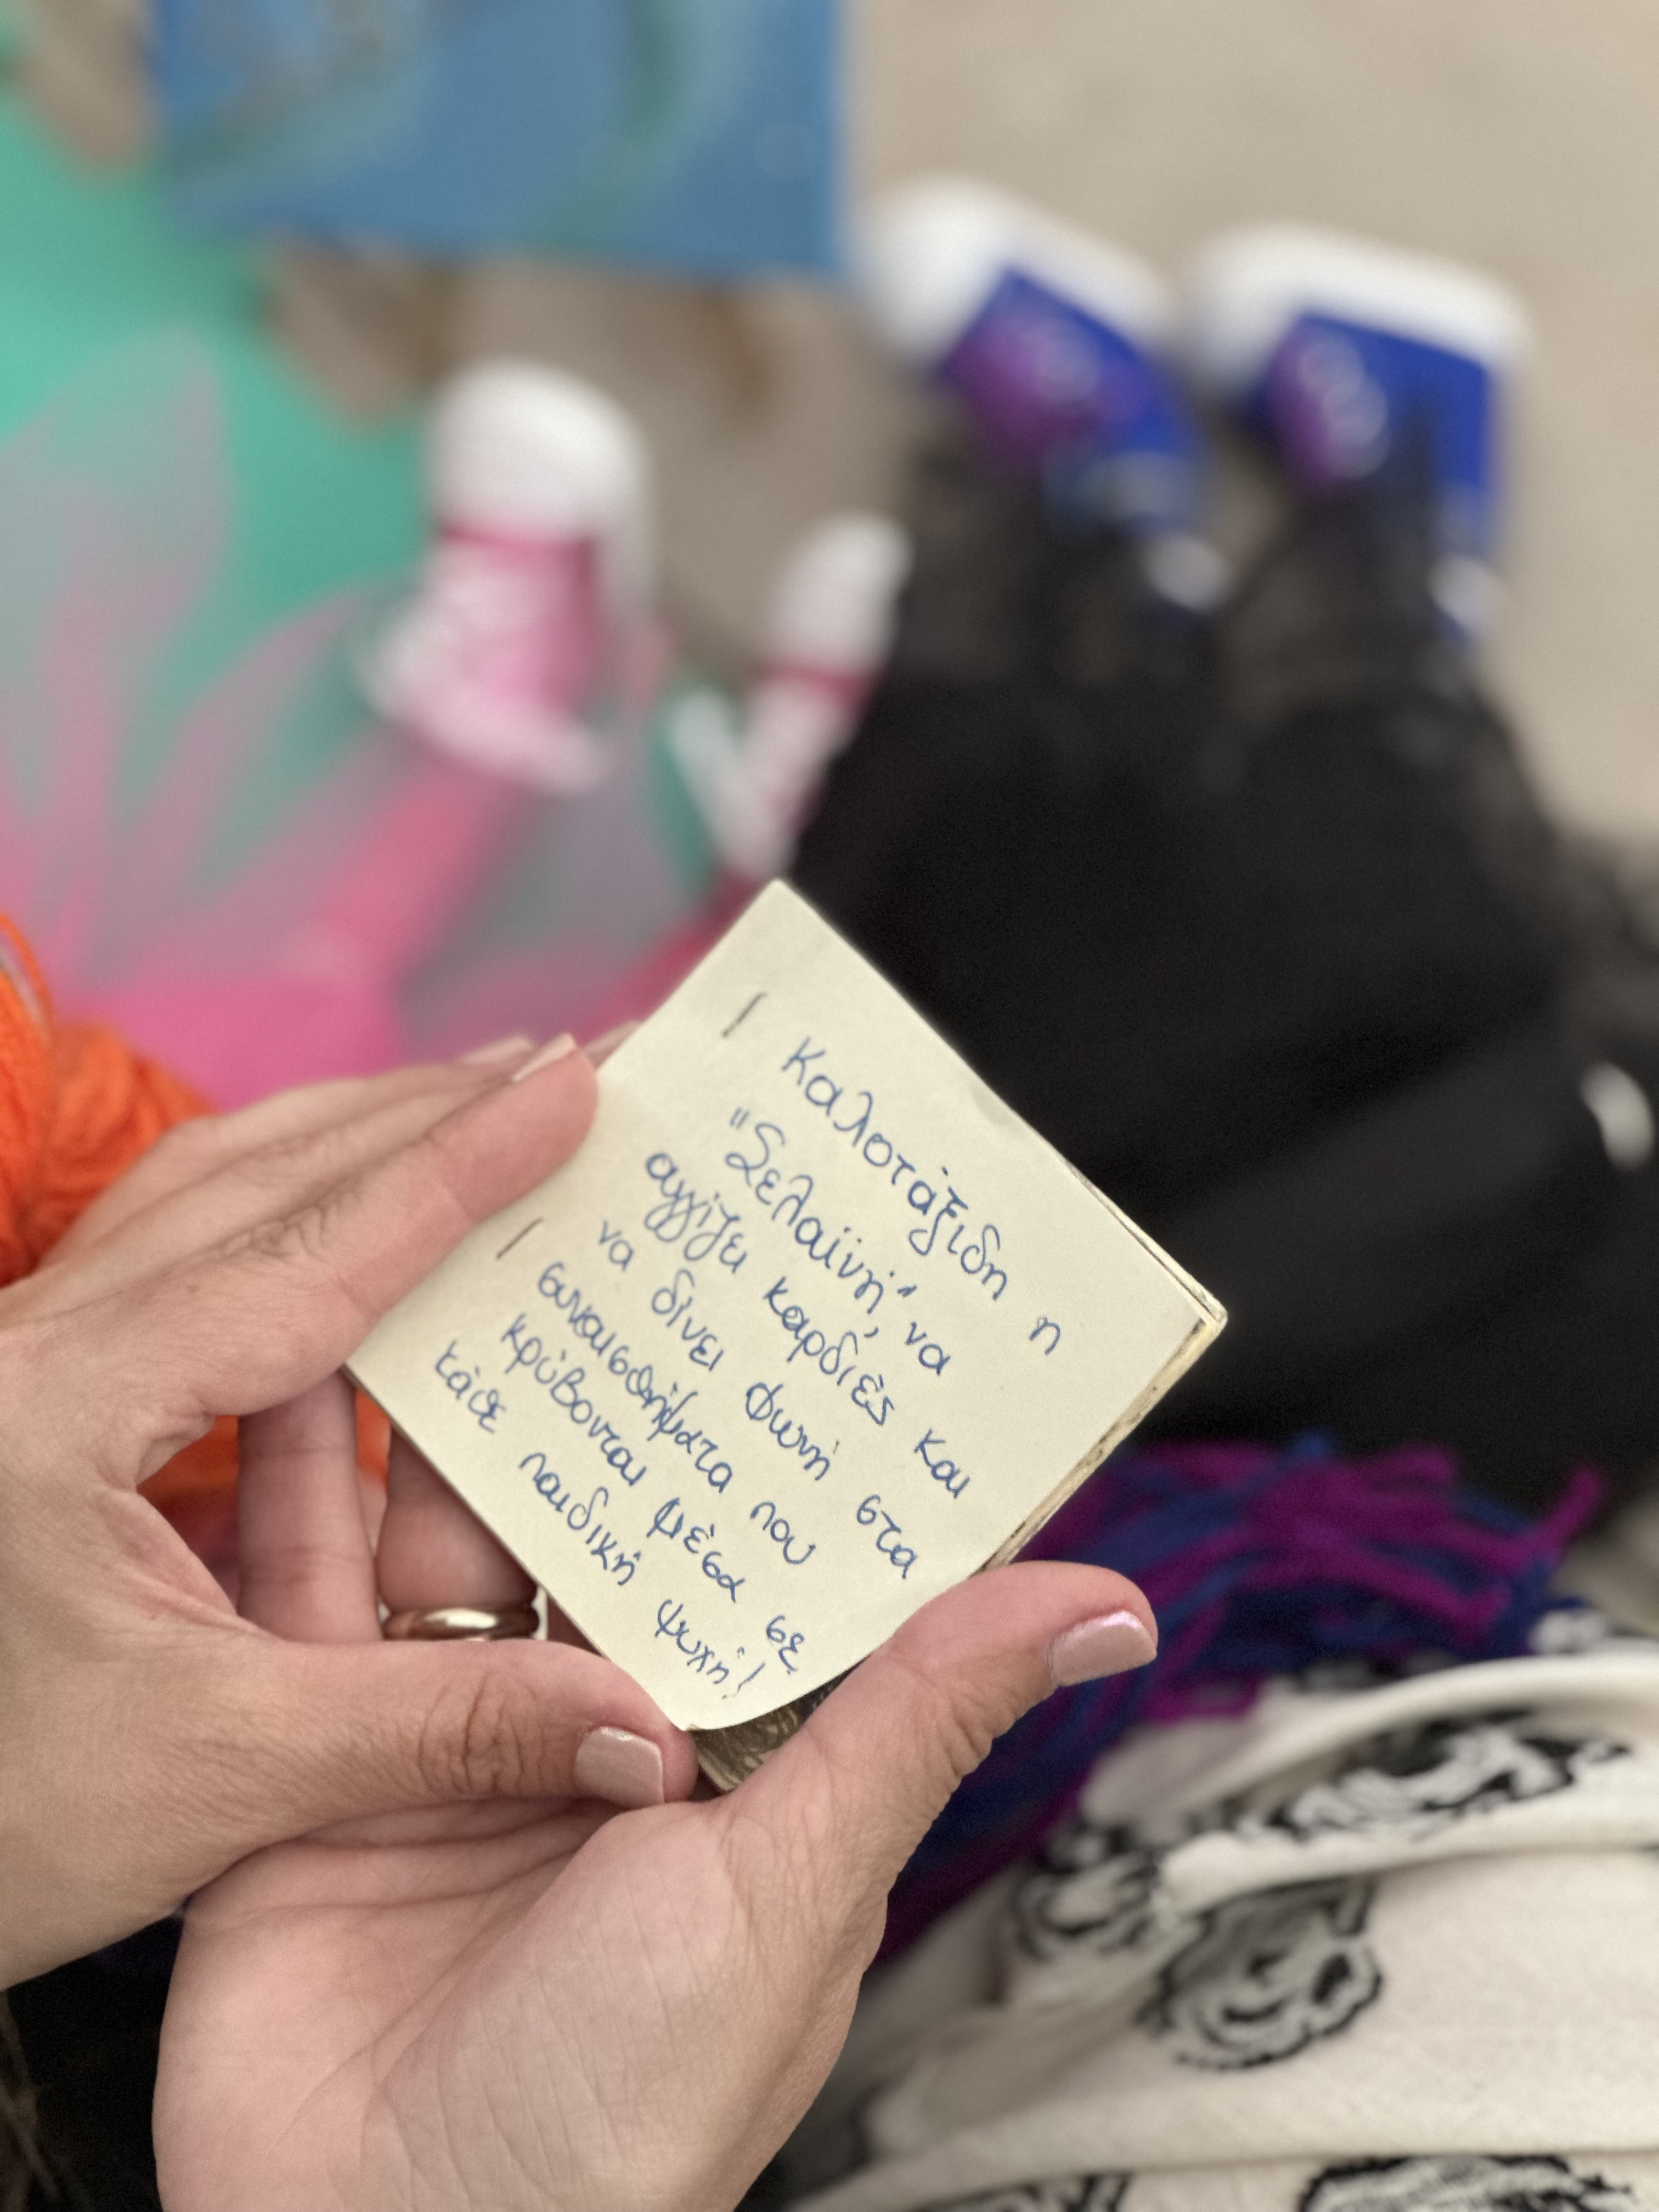 Καλοτάξιδη η
"Σελαϊνή", να
αγγίζει καρδιές και
να δίνει φωνή στα
συναισθήματα που
κρύβονται μέσα σε
κάθε παιδική ψυχή!